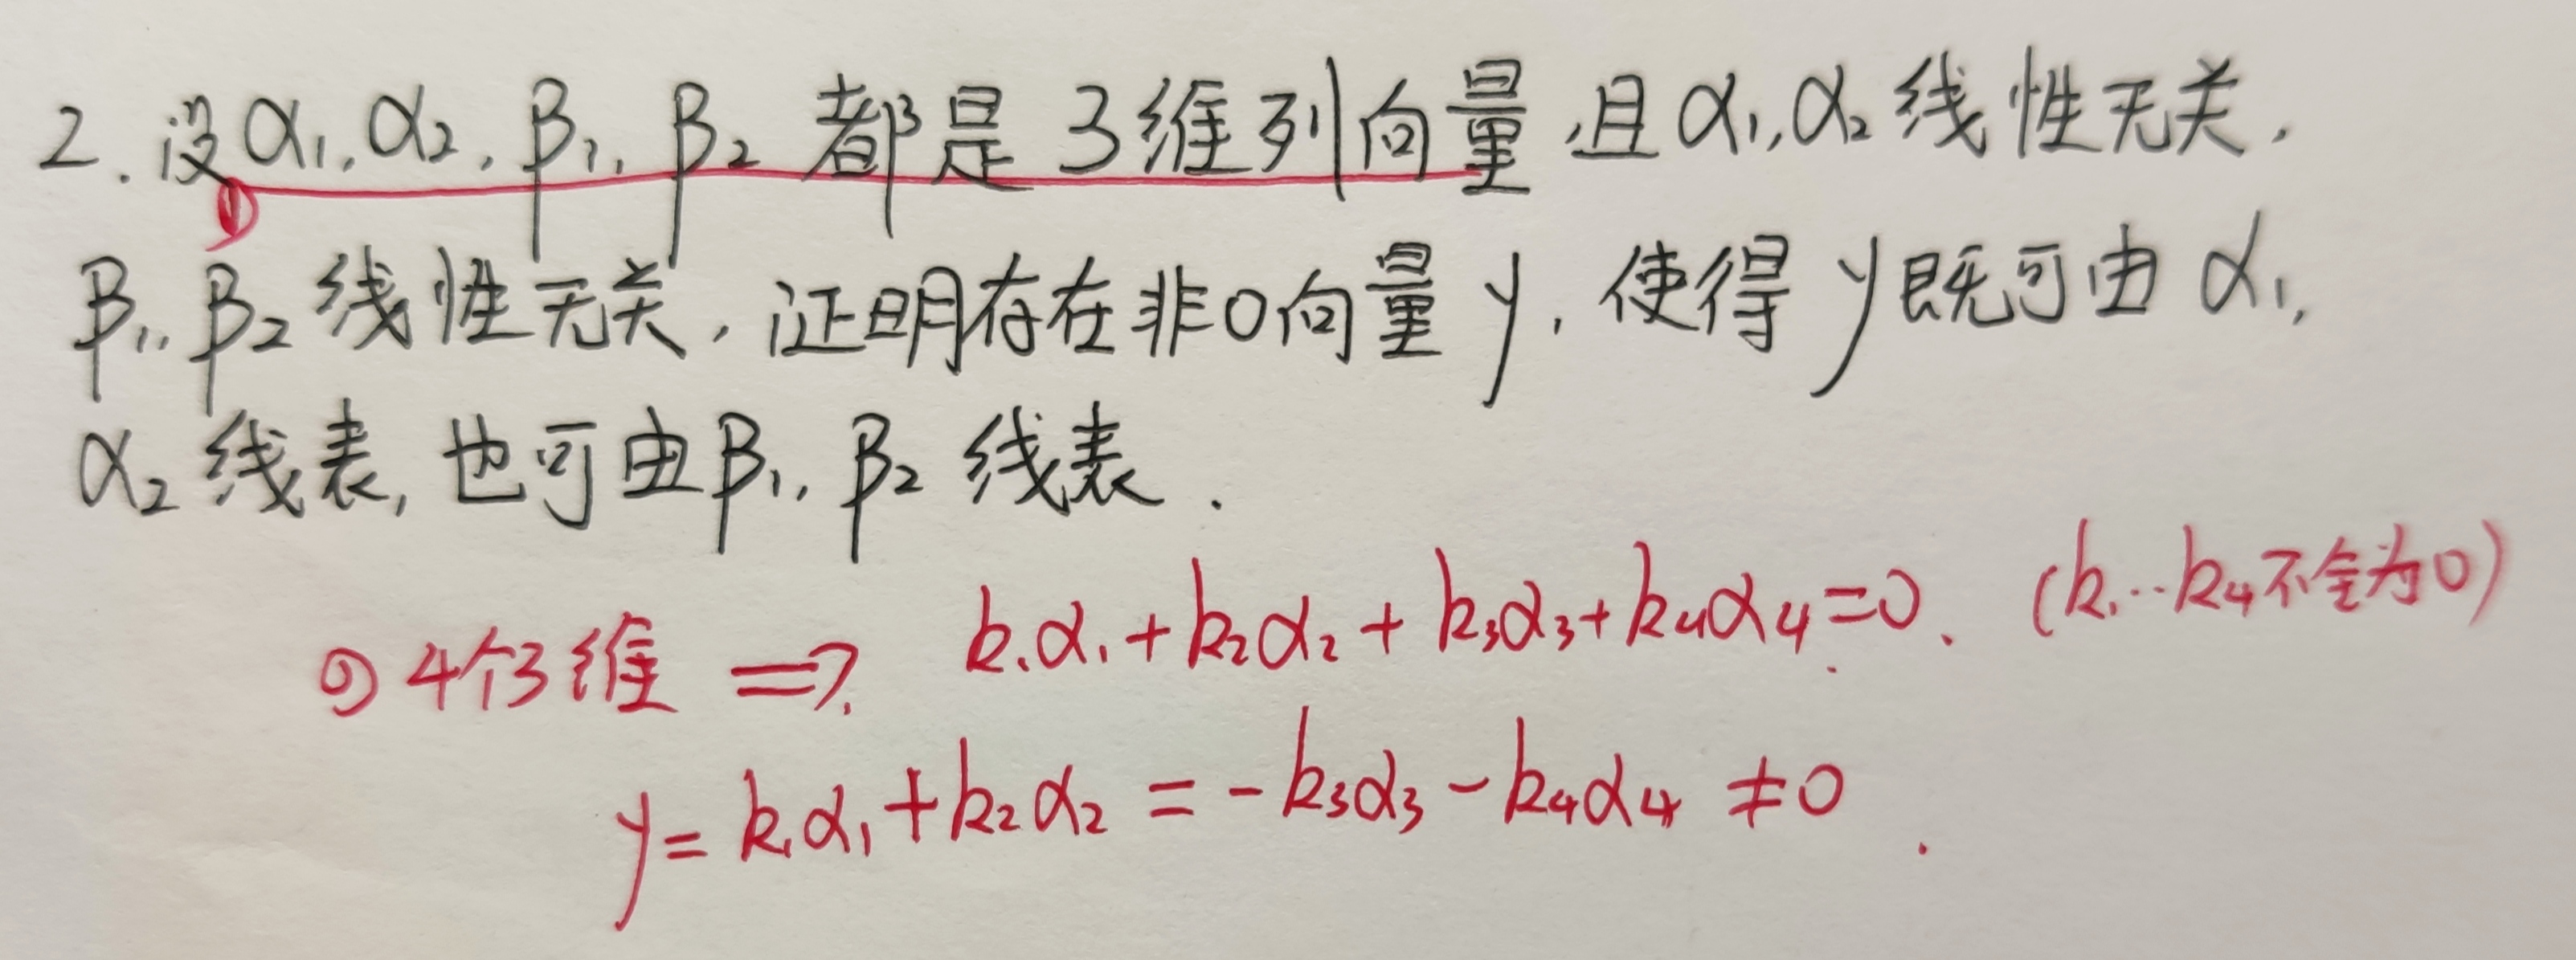 2. 设α₁, α₂, β₁, β₂ 都是 3维列向量, 且α₁, α₂ 线性无关,
①
β₁, β₂ 线性无关, 证明存在非0向量 y, 使得 y 既可由 α₁,
α₂ 线表, 也可由β₁, β₂ 线表.
① 4个3维 ⇒ k₁α₁+k₂α₂+k₃α₃+k₄α₄=0. (k₁…k₄不全为0)
y= k₁α₁+k₂α₂ = -k₃α₃-k₄α₄ ≠0.